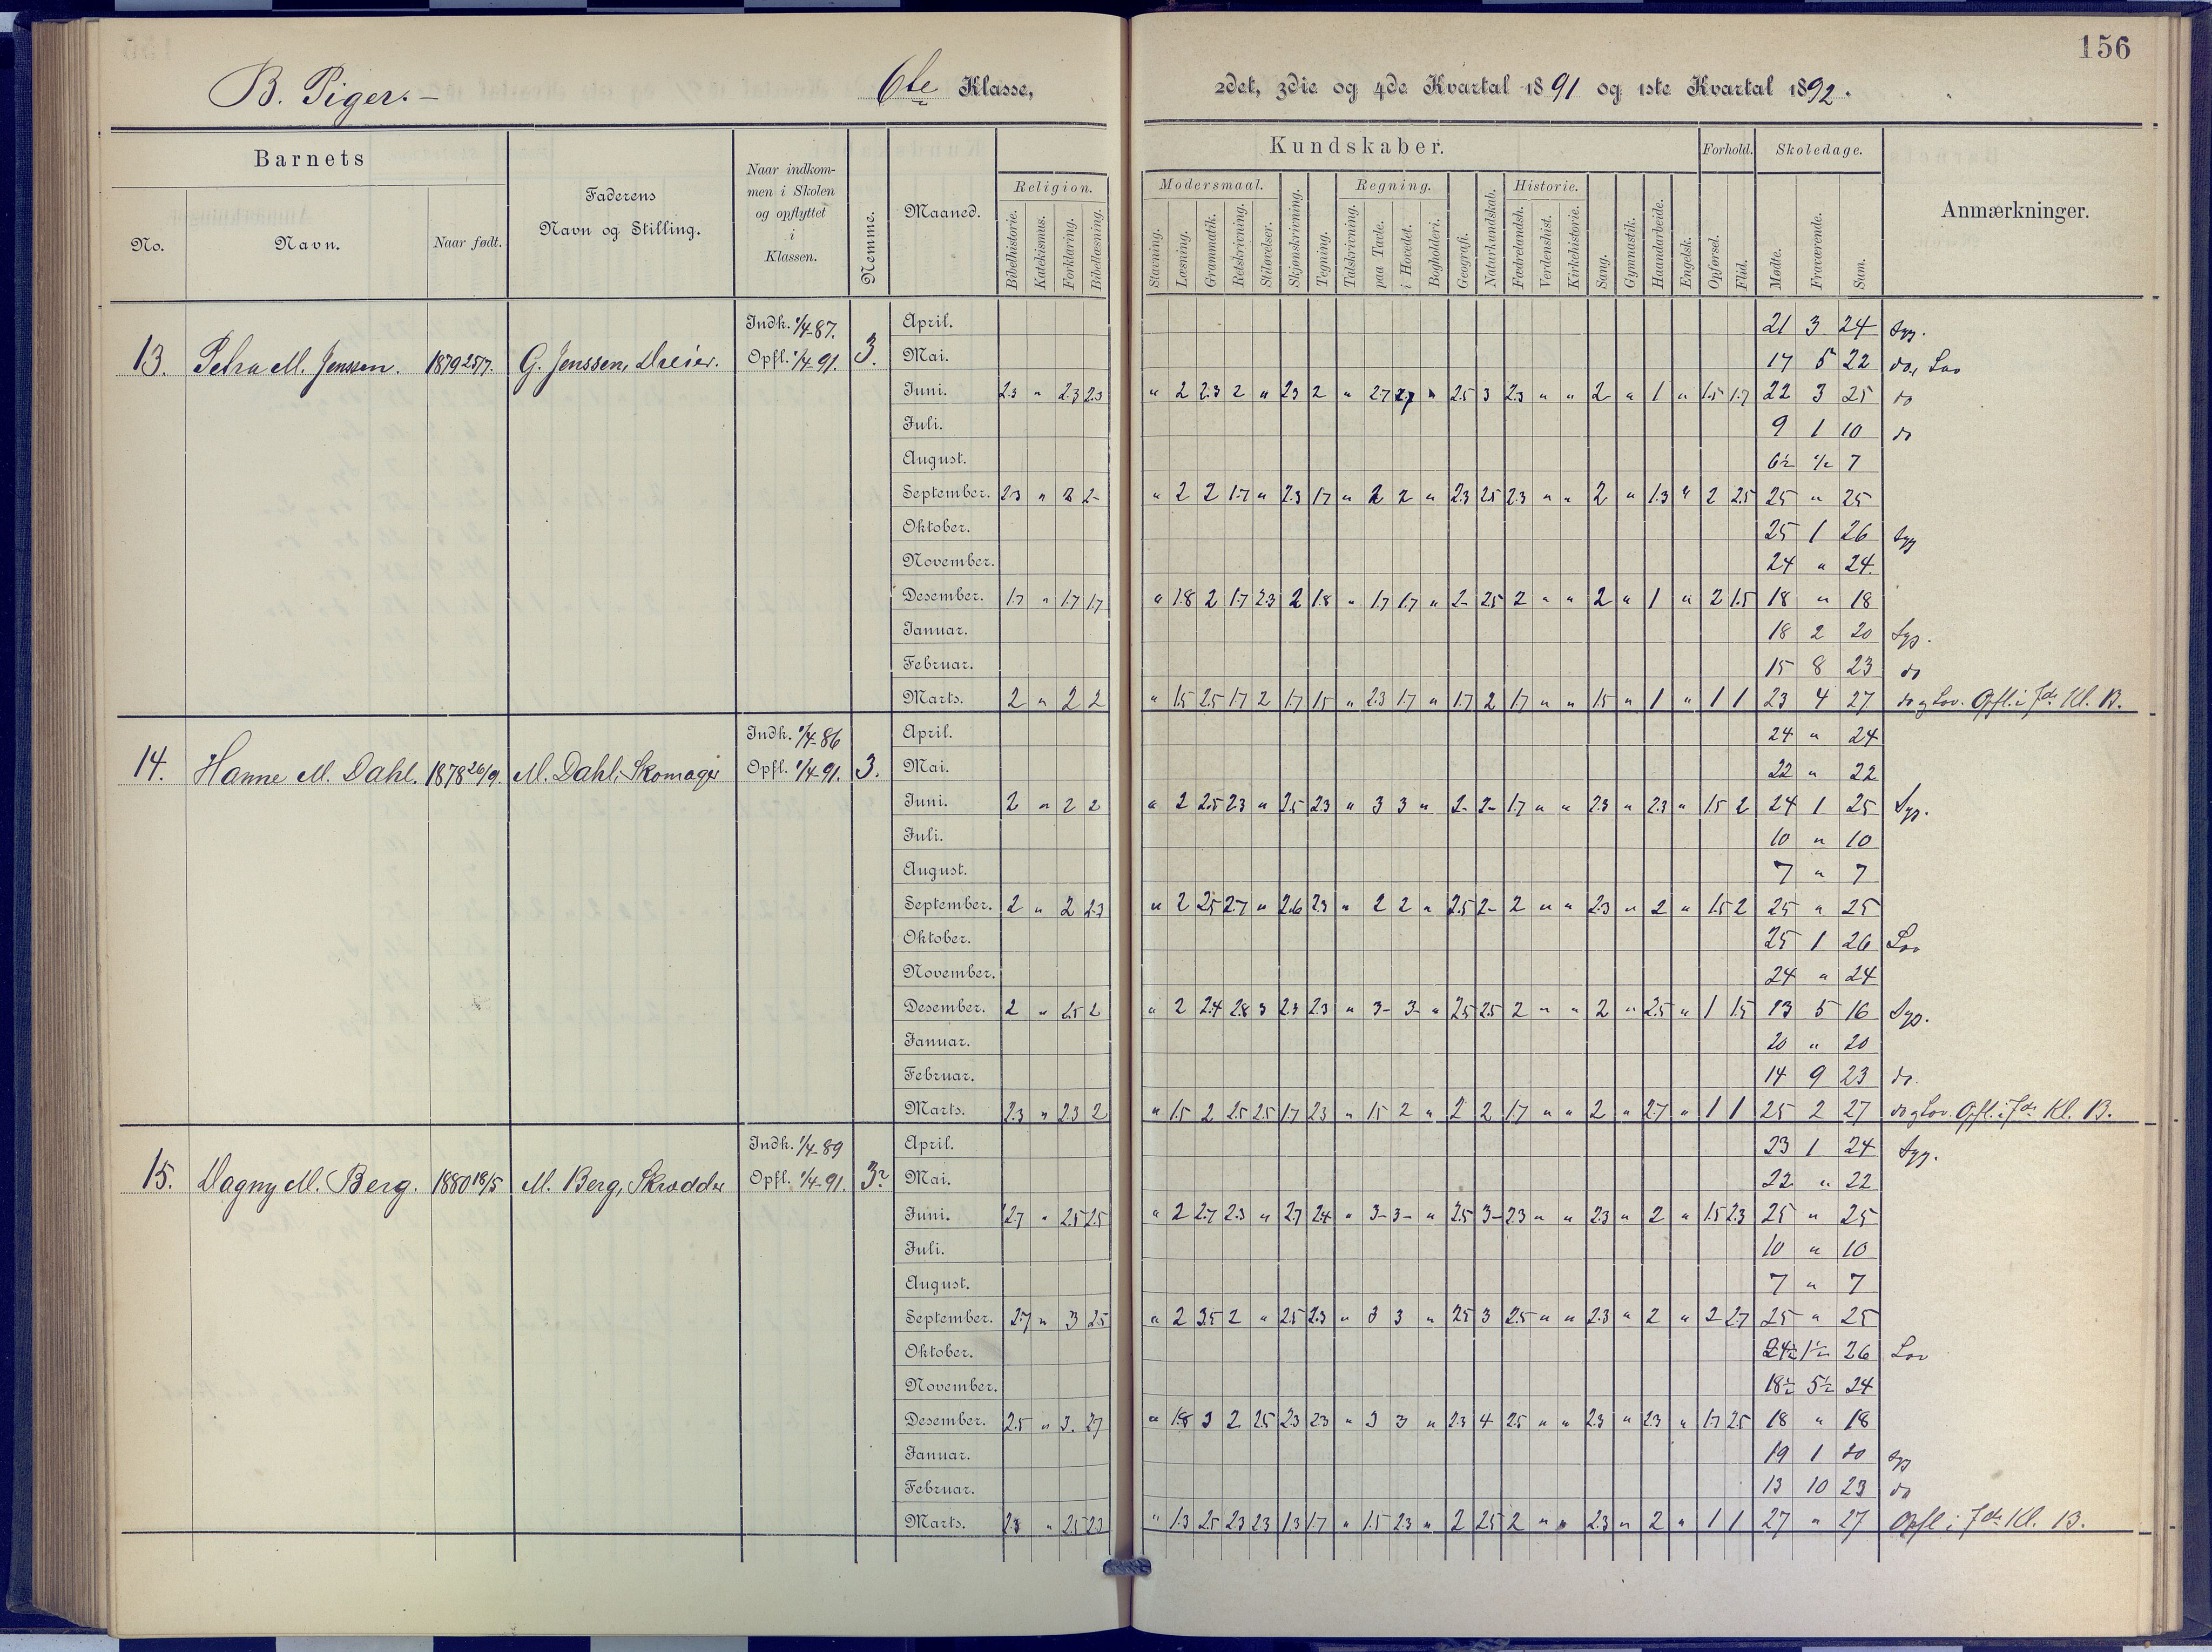 156
B. Piger. –
6te Klasse,
2det, 3die og 4de Kvartal 1891 og 1ste Kvartal 1892.
Barnets
No.
Navn.
Naar født.
Faderens
Navn og Stilling.
Naar indkom-
men i Skolen
og opflyttet
i
Klassen.
Nemme.
Maaned.
Religion.
Bibelhistorie.
Katekismus.
Forklaring.
Bibellæsning.
Kundskaber.
Modersmaal.
Stavning.
Læsning.
Grammatik.
Retskrivning.
Stiløvelser.
Skjønskrivning.
Tegning.
Regning.
Talskrivning.
paa Tavle.
i Hovedet.
Bogholderi.
Geografi.
Naturkundskab.
Historie.
Fædrelandsh.
Verdenshist.
Kirkehistorie.
Sang.
Gymnastik.
Haandarbeide.
Engelsk.
Forhold.
Opførsel.
Flid.
Skoledage.
Mødte.
Fraværende.
Sum.
Anmærkninger.
13. Petra M. Jenssen. 1879 25/7. G. Jenssen, Dreier. Indk. 1/4-87. Opfl. 1/4-91. 3.
April. 21 3 24 Syg.
Mai. 17 5 22 do, Lov
Juni. 2.3 " 2.3 2.3 " 2 2.3 2 " 2.3 2 " 2.7 2.7 " 2.5 3 2.3 " " 2 " 1 " 1.5 1.7 22 3 25 do
Juli. 9 1 10 do
August. 6½ ½ 7
September. 2.3 " 2 2- " 2 2 1.7 " 2.3 1.7 " 2 2 " 2.3 2.5 2.3 " " 2 " 1.3 " 2 2.5 25 " 25
Oktober. 25 1 26 Syg
November. 24 " 24.
Desember. 1.7 " 1.7 1.7 " 1.8 2 1.7 2.3 2 1.8 " 1.7 1.7 " 2- 2.5 2 " " 2 " 1 " 2 1.5 18 " 18
Januar. 18 2 20 Syg.
Februar. 15 8 23 do
Marts. 2 " 2 2 " 1.5 2.5 1.7 2 1.7 1.5 " 2.3 1.7 " 1.7 2 1.7 " " 1.5 " 1 " 1 1 23 4 27 do og Lov. Opfl. i 7de Kl. B.
14. Hanne M. Dahl. 1878 26/9. M. Dahl, Skomager Indk. 1/4-86 Opfl. 1/4-91. 3.
April. 24 " 24
Mai. 22 " 22
Juni. 2 " 2 2 " 2 2.5 2.3 " 2.5 2.3 " 3 3 " 2- 2- 1.7 " " 2.3 " 2.3 " 1.5 2 24 1 25 Syg.
Juli. 10 " 10
August. 7 " 7
September. 2 " 2 2.3 " 2 2.5 2.7 " 2.6 2.3 " 2 2 " 2.5 2- 2 " " 2.3 " 2 " 1.5 2 25 " 25
Oktober. 25 1 26 Lov
November. 24 " 24
Desember. 2 " 2.5 2 " 2 2.4 2.8 3 2.3 2.3 " 3- 3- " 2.5 2.5 2 " " 2 " 2.5 " 1 1.5 13 5 16 Syg.
Januar. 20 " 20
Februar. 14 9 23 do.
Marts. 2.3 " 2.3 2 " 1.5 2 2.5 2.5 1.7 2.3 " 1.5 2 " 2 2 1.7 " " 2 " 2.7 " 1 1 25 2 27 do og Lov. Opfl. i 7de Kl. B.
15. Dagny M. Berg. 1880 18/5 M. Berg, Skrædder Indk. 1/4-89 Opfl. 1/4-91. 3?
April. 23 1 24 Syg.
Mai. 22 " 22
Juni. 2.7 " 2.5 2.5 " 2 2.7 2.3 " 2.7 2.4 " 3- 3- " 2.5 3- 2.3 " " 2.3 " 2 " 1.5 2.3 25 " 25
Juli. 10 " 10
August. 7 " 7
September. 2.7 " 3 2.5 " 2 3.5 2 " 2.5 2.3 " 3 3 " 2.5 3 2.5 " " 2.3 " 2 " 2 2.7 25 " 25
Oktober. 24½ 1½ 26 Lov
November. 18½ 5½ 24
Desember. 2.5 " 3. 2.7 " 1.8 3 2 2.5 2.3 2.3 " 3 3 " 2.3 4 2.5 " " 2.3 " 2.3 " 1.7 2.5 18 " 18
Januar. 19 1 20 Syg
Februar. 13 10 23 do
Marts. 2.3 " 2.5 2.3 " 1.3 2.5 2.3 2.3 1.3 1.7 " 1.5 2.3 " 2 2.5 2 " " 2.3 " 2 " 1 1 27 " 27 Opfl i 7de Kl. B.